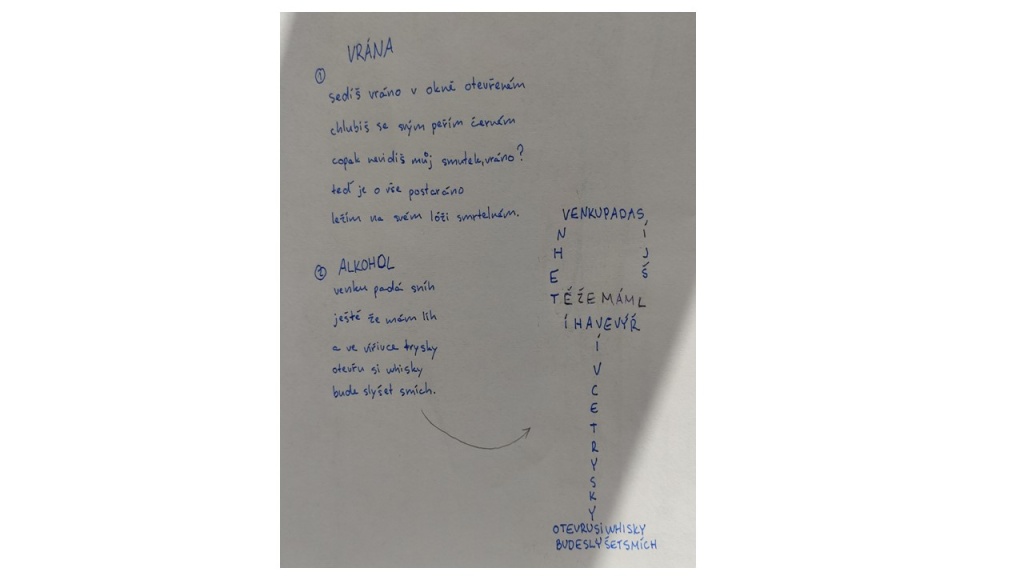 VRÁNA
①
sedíš vráno v okně otevřeném
chlubíš se svým peřím černém
copak nevidíš můj smutek, vráno?
teď je o vše postaráno
ležím na svém lóži smrtelném.
② ALKOHOL
venku padá sníh
ještě že mám líh
a ve vířivce trysky
otevřu si whisky
bude slyšet smích.
VENKUPADAS
N Í
H J
E Š
TĚŽE MÁM L
ÍHAVEVÝŘ
Í
V
C
E
T
R
Y
S
K
Y
OTEVRUSIWHISKY
BUDESLYŠETSMÍCH